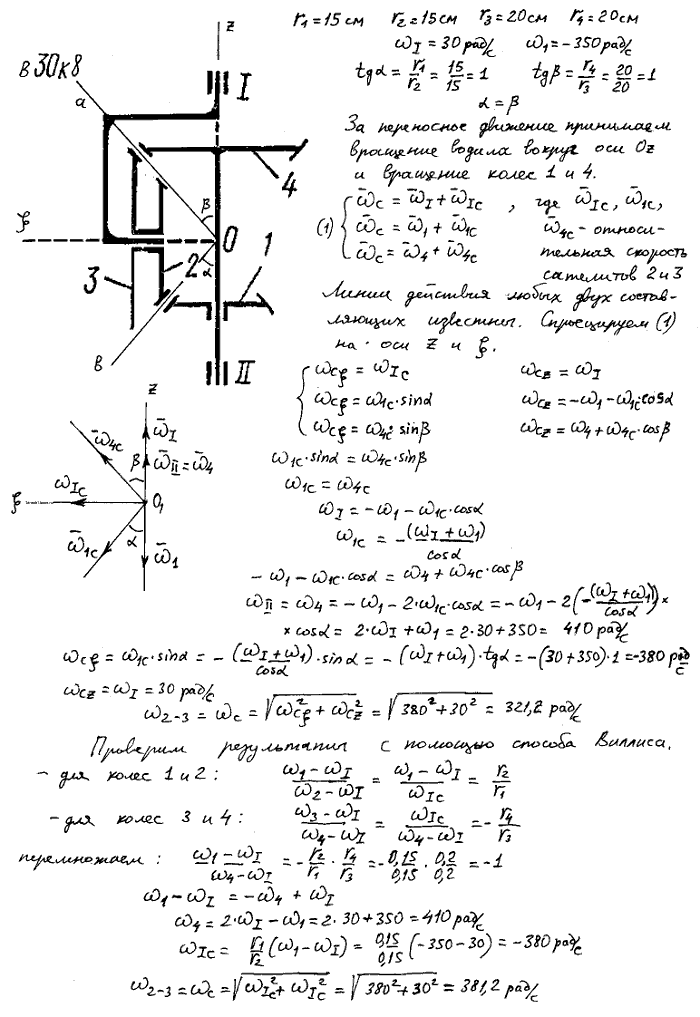 r₁ = 15 см r₂ = 15 см r₃ = 20 см r₄ = 20 см
ω_I = 30 рад/с ω₁ = −350 рад/с
tgα = r₁/r₂ = 15/15 = 1 tgβ = r₄/r₃ = 20/20 = 1
α = β
За переносное движение принимаем
вращение водила вокруг оси Oz
и вращение колес 1 и 4.
(1) { ω̄c = ω̄_I + ω̄_Ic , где ω̄_Ic, ω̄₁c,
ω̄c = ω̄₁ + ω̄₁c ω̄₄c - относи-
ω̄c = ω̄₄ + ω̄₄c тельная скорость
сателитов 2 и 3
Линии действия любых двух состав-
ляющих известны. Спроецируем (1)
на оси z и ξ.
z
В 30 к 8
I
a
4
β
ξ
O
1
2
α
3
в
II
{ ωcξ = ω_Ic ωcz = ω_I
ωcξ = ω₁c·sinα ωcz = −ω₁ − ω₁c·cosα
ωcξ = ω₄c·sinβ ωcz = ω₄ + ω₄c·cosβ
z
ω̄₄c
ω̄_I
β
ω̄_II = ω̄₄
ω̄_Ic
ξ
O₁
ω̄₁c
α
ω̄₁
ω₁c·sinα = ω₄c·sinβ
ω₁c = ω₄c
ω_I = −ω₁ − ω₁c·cosα
ω₁c = −(ω_I + ω₁)/cosα
−ω₁ − ω₁c·cosα = ω₄ + ω₄c·cosβ
ω_II = ω₄ = −ω₁ − 2·ω₁c·cosα = −ω₁ − 2(−(ω_I + ω₁)/cosα) ×
× cosα = 2·ω_I + ω₁ = 2·30 + 350 = 410 рад/с
ωcξ = ω₁c·sinα = −(ω_I + ω₁)/cosα · sinα = −(ω_I + ω₁)·tgα = −(30 + 350)·1 = −380 рад/с
ωcz = ω_I = 30 рад/с
ω₂₋₃ = ωc = √(ωcξ² + ωcz²) = √(380² + 30²) = 321,2 рад/с
Проверим результаты с помощью способа Виллиса.
− для колес 1 и 2: (ω₁ − ω_I)/(ω₂ − ω_I) = (ω₁ − ω_I)/ω_Ic = r₂/r₁
− для колес 3 и 4: (ω₃ − ω_I)/(ω₄ − ω_I) = ω_Ic/(ω₄ − ω_I) = −r₄/r₃
перемножаем: (ω₁ − ω_I)/(ω₄ − ω_I) = −r₂/r₁ · r₄/r₃ = −0,15/0,15 · 0,2/0,2 = −1
ω₁ − ω_I = −ω₄ + ω_I
ω₄ = 2·ω_I − ω₁ = 2·30 + 350 = 410 рад/с
ω_Ic = r₁/r₂ (ω₁ − ω_I) = 0,15/0,15 (−350 − 30) = −380 рад/с
ω₂₋₃ = ωc = √(ω_Ic² + ω_Ic²) = √(380² + 30²) = 381,2 рад/с